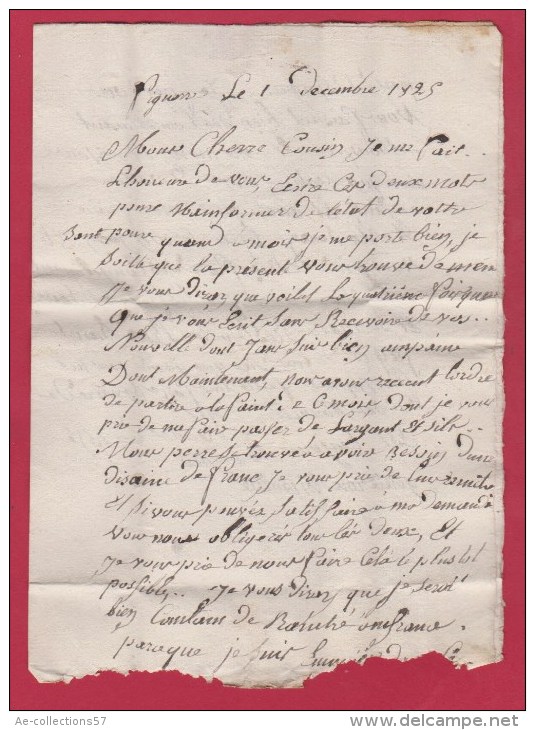 Le 1 decembre 1825
Mons Cherre Cousin Je me fait
Lhoneure de vous Ecrire Ces deux mots
poure Mainformer de letat de votre
Sant poure quand a mois je me porte bien je
Soite que la présent vous trouve de men
Je vous diray que voila La quatrieme fois
que je vous Ecrit Sans Recevoire de vos
Nouvelle dont Jan Suis bien ampaine
Dont Maintenent, nous avons recent Lordre
de partire a la Saint e 6 mois dont je vous
prie de me faire passer de Largant Et
Mons perre Se trouve a voire Bessoin dune
disaine de franc Je vous prie de
Et Si vous pouvez Satisfaire a ma demande
vous nous obligeres tous les deux, Et
Je vous prie de nous faire Cela le plus tot
possible.. Je vous diray que je serai
bien Contant de Rantré an france.
parce que je suis
Ae-collections57
www.delcampe.net